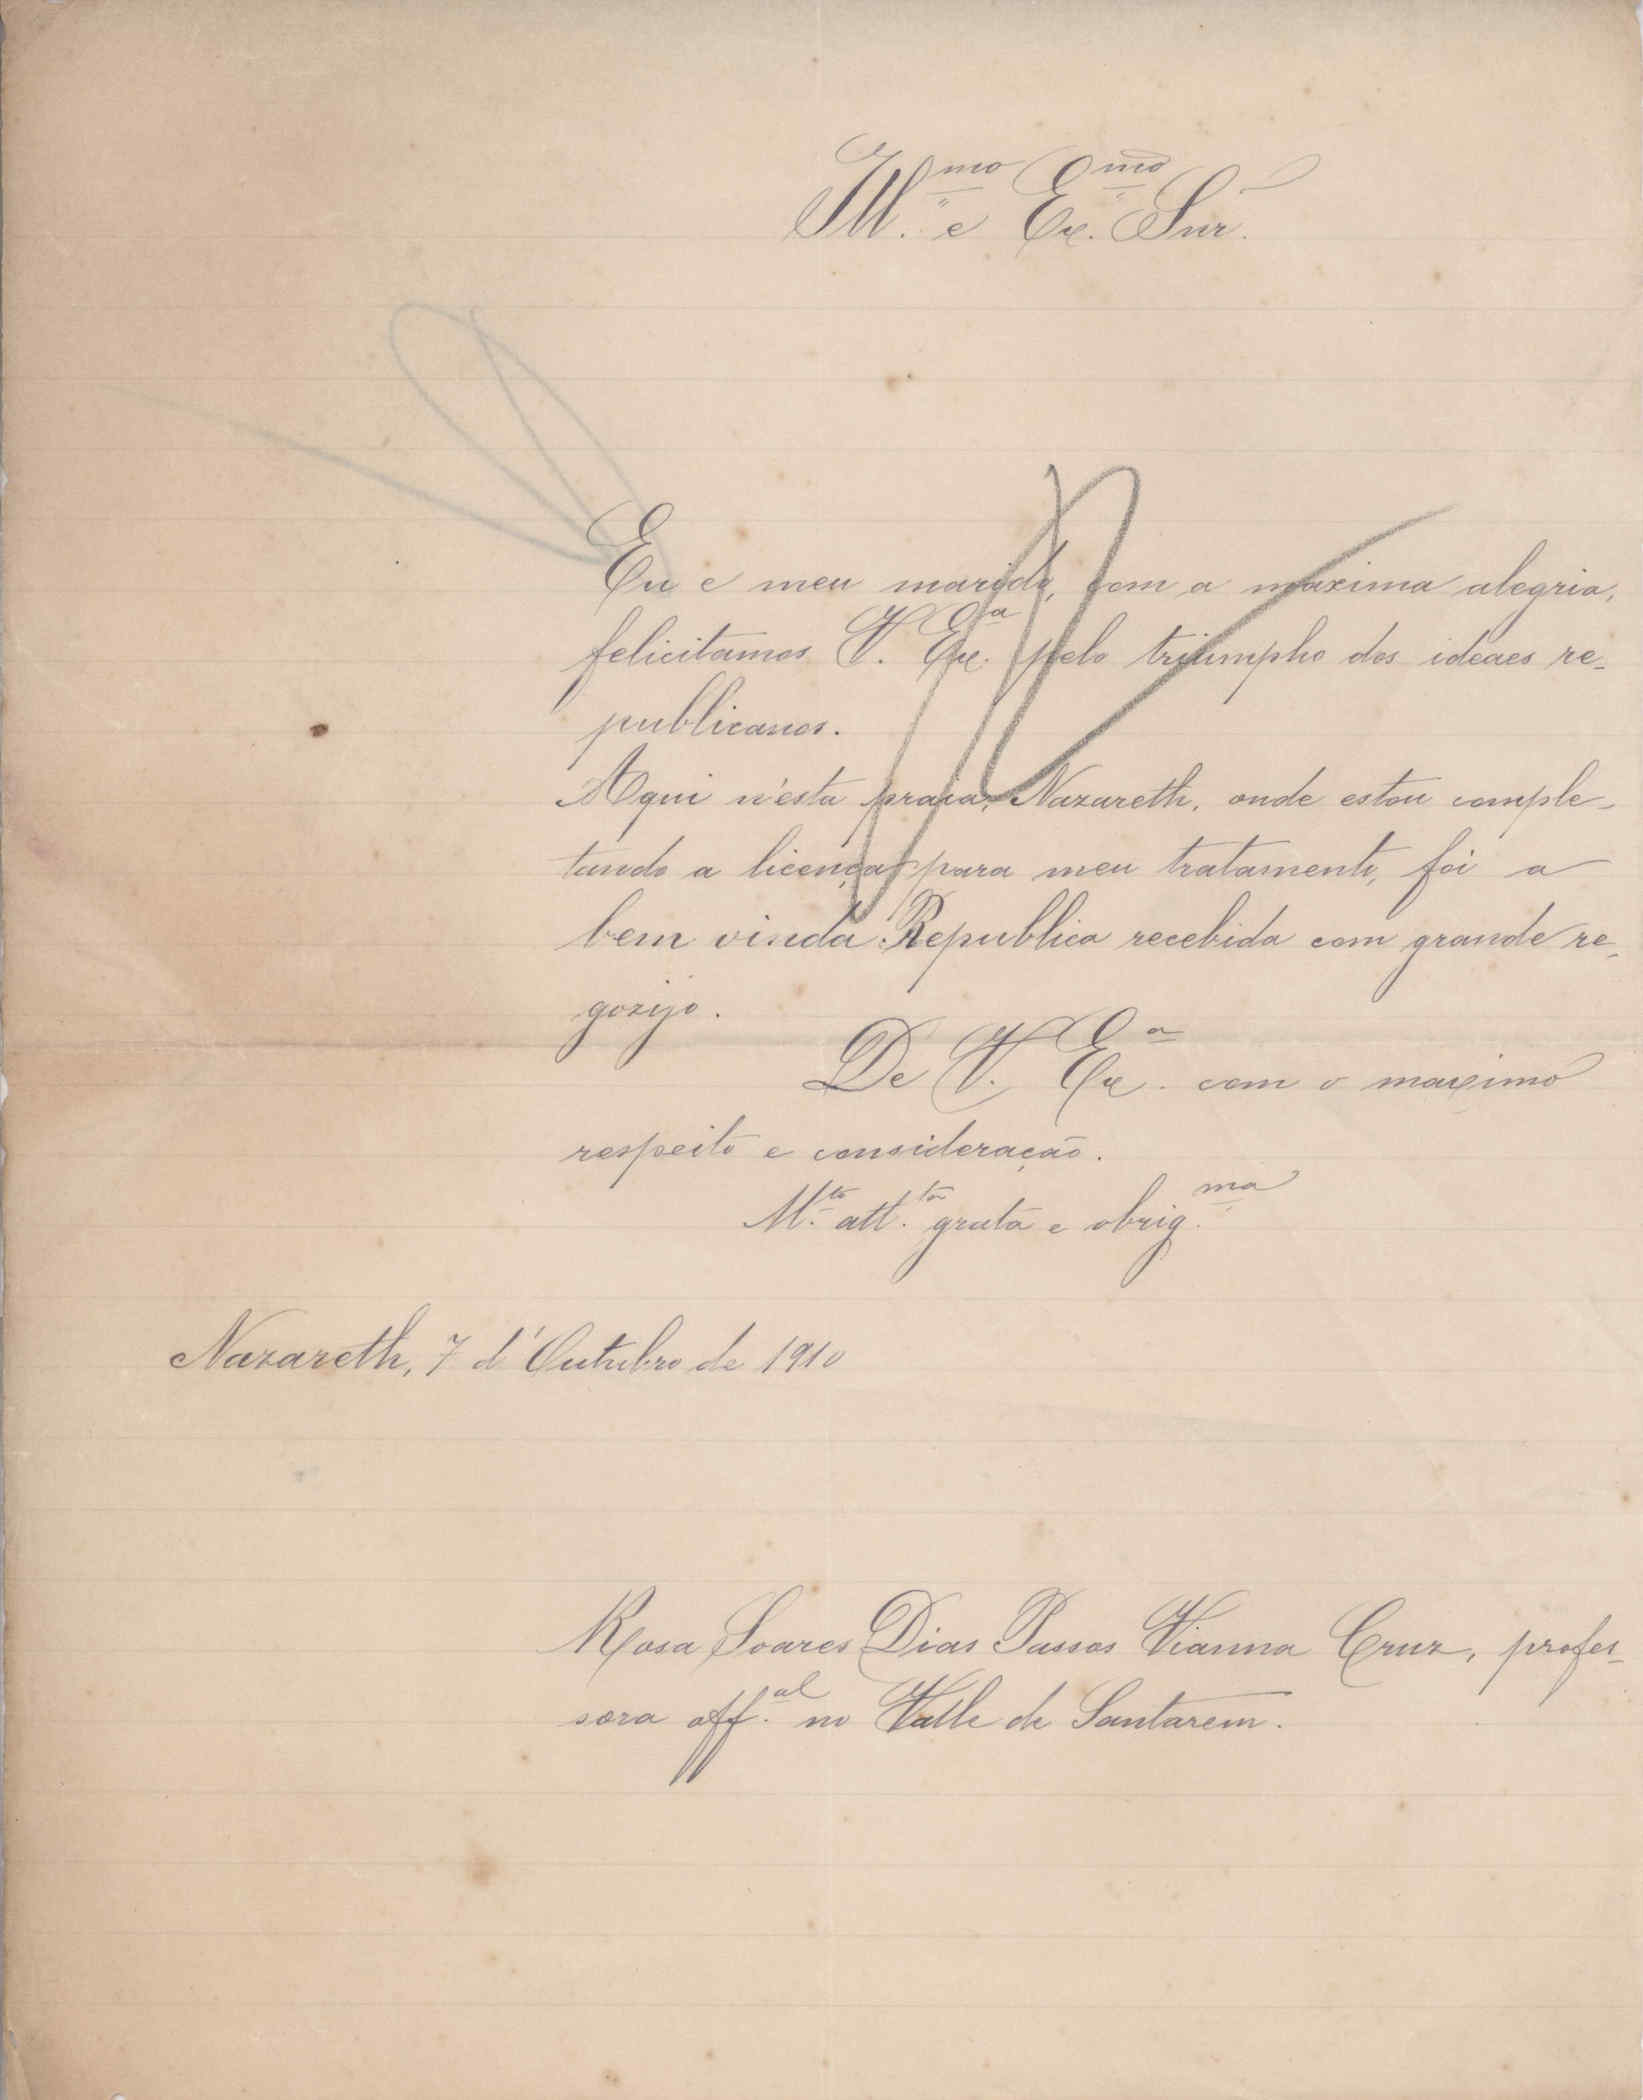 Ill.mo e Ex.mo Snr.
Eu e meu marido, com a maxima alegria,
felicitamos V. Ex.a pelo triumpho dos ideaes re-
publicanos.
Aqui n'esta praia, Nazareth, onde estou comple-
tando a licença para meu tratamento, foi a
bem vinda Republica recebida com grande re-
gozijo.
De V. Ex.a com o maximo
respeito e consideração.
M.to att.ta grata e obrig.ma
Nazareth, 7 d'Outubro de 1910
Rosa Soares Dias Passos Vianna Cruz, profes-
sora off.al no Valle de Santarem.